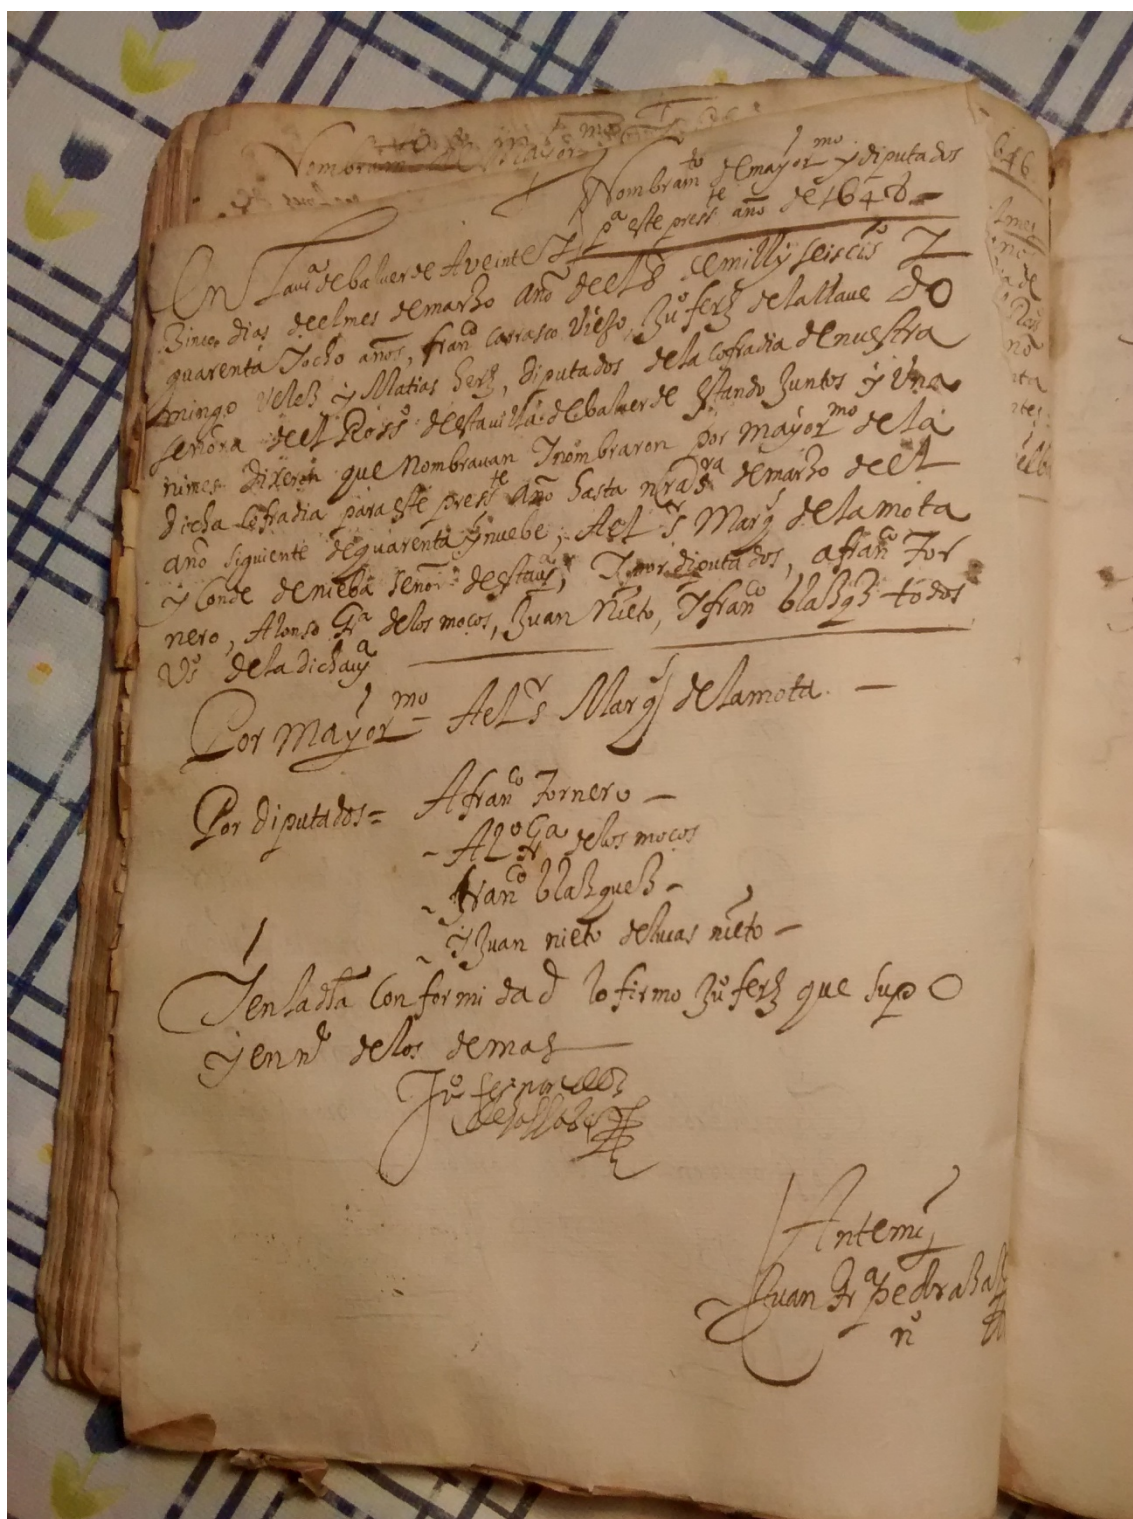 Nombram
Nombramto de mayormo y diputados
pa este presste año de 1648
En La va de balverde A veinte I
Zinco dias deel mes de marzo Año deel Sr de mill y seiscos I
quarenta I ocho años, franco Carrasco Viejo, Juo ferz de la llave Do
mingo Velez y Matias herz, diputados de la Cofradia de nuestra
señora deel Ross.o de esta villa de balverde Estando Juntos y Una
nimes Dixeron que Nombravan I nombraron por mayormo de la
Dicha Cofradia para este presste Año hasta nra sra de marzo deel
año siguiente de quarenta y nuebe, Ael sr Marqs de la mota
y Conde de nieba señor de esta va, I por diputados, a franco Tor
nero, Alonso Gra de los moços, Juan Nieto, I franco blazqz todos
Vos de la dicha va
Por mayormo = Ael sr Marqs de la mota.
Por diputados = A franco Tornero
- Alo Ga de los moços
- franco blazquez -
- y Juan nieto de lucas nieto -
I en la dha Conformidad lo firmo Juo ferz que supo
y en ne de los demas
Juo fer
de la llabe
Ante mi
Juan Gra Pedraza
no
646